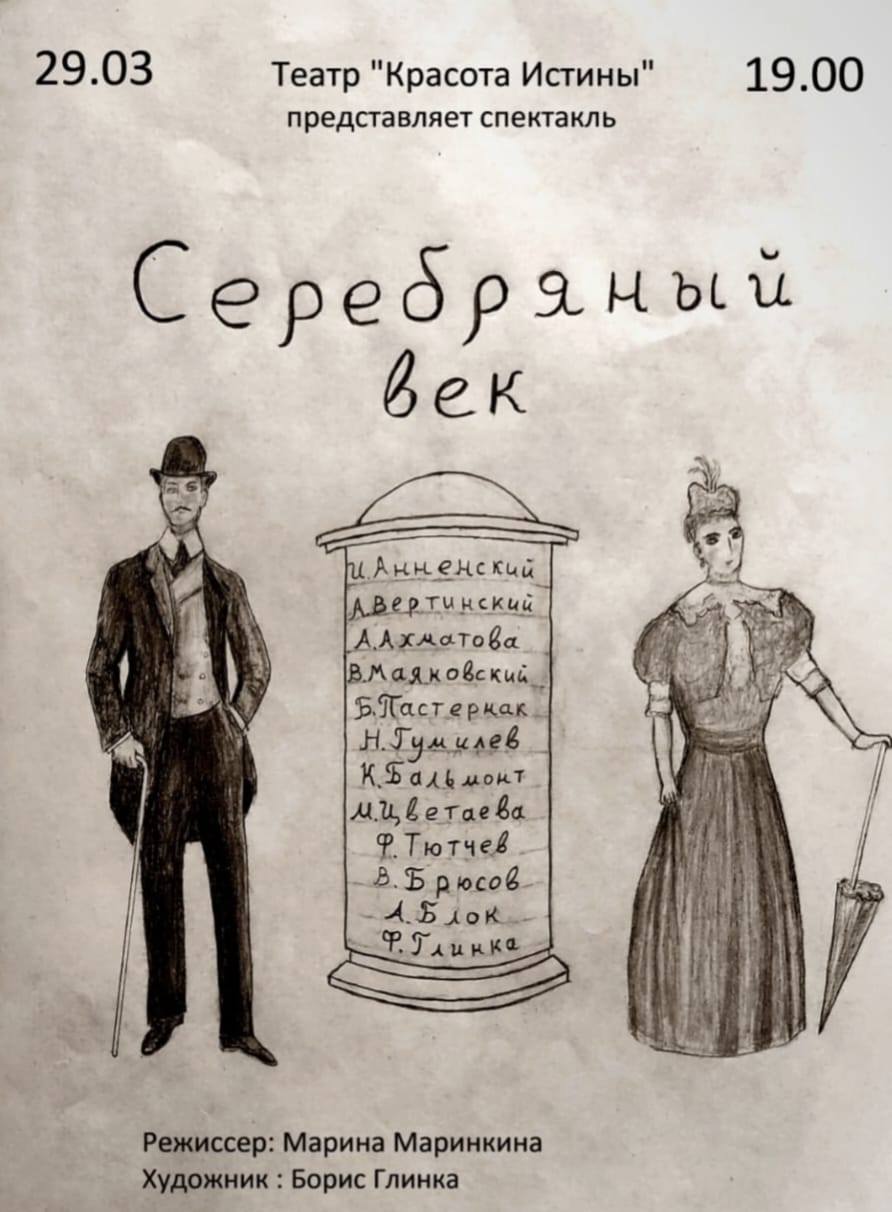 29.03
Театр "Красота Истины"
19.00
представляет спектакль
Серебряный
век
И.Анненский
А.Вертинский
А.Ахматова
В.Маяковский
Б.Пастернак
Н.Гумилев
К.Бальмонт
М.Цветаева
Ф.Тютчев
В.Брюсов
А.Блок
Ф.Глинка
Режиссер: Марина Маринкина
Художник : Борис Глинка